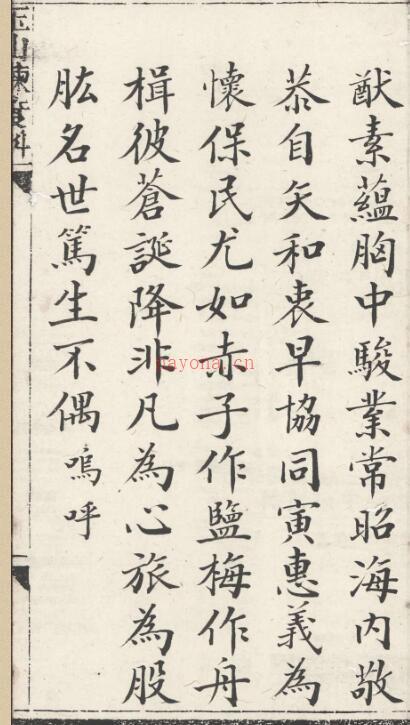 猷素蘊胸中駿業常昭海内敬
恭自矢和衷早協同寅惠義為
懷保民尤如赤子作鹽梅作舟
楫彼蒼誕降非凡為心旅為股
肱名世篤生不偶嗚呼
玉山
yayona.cn